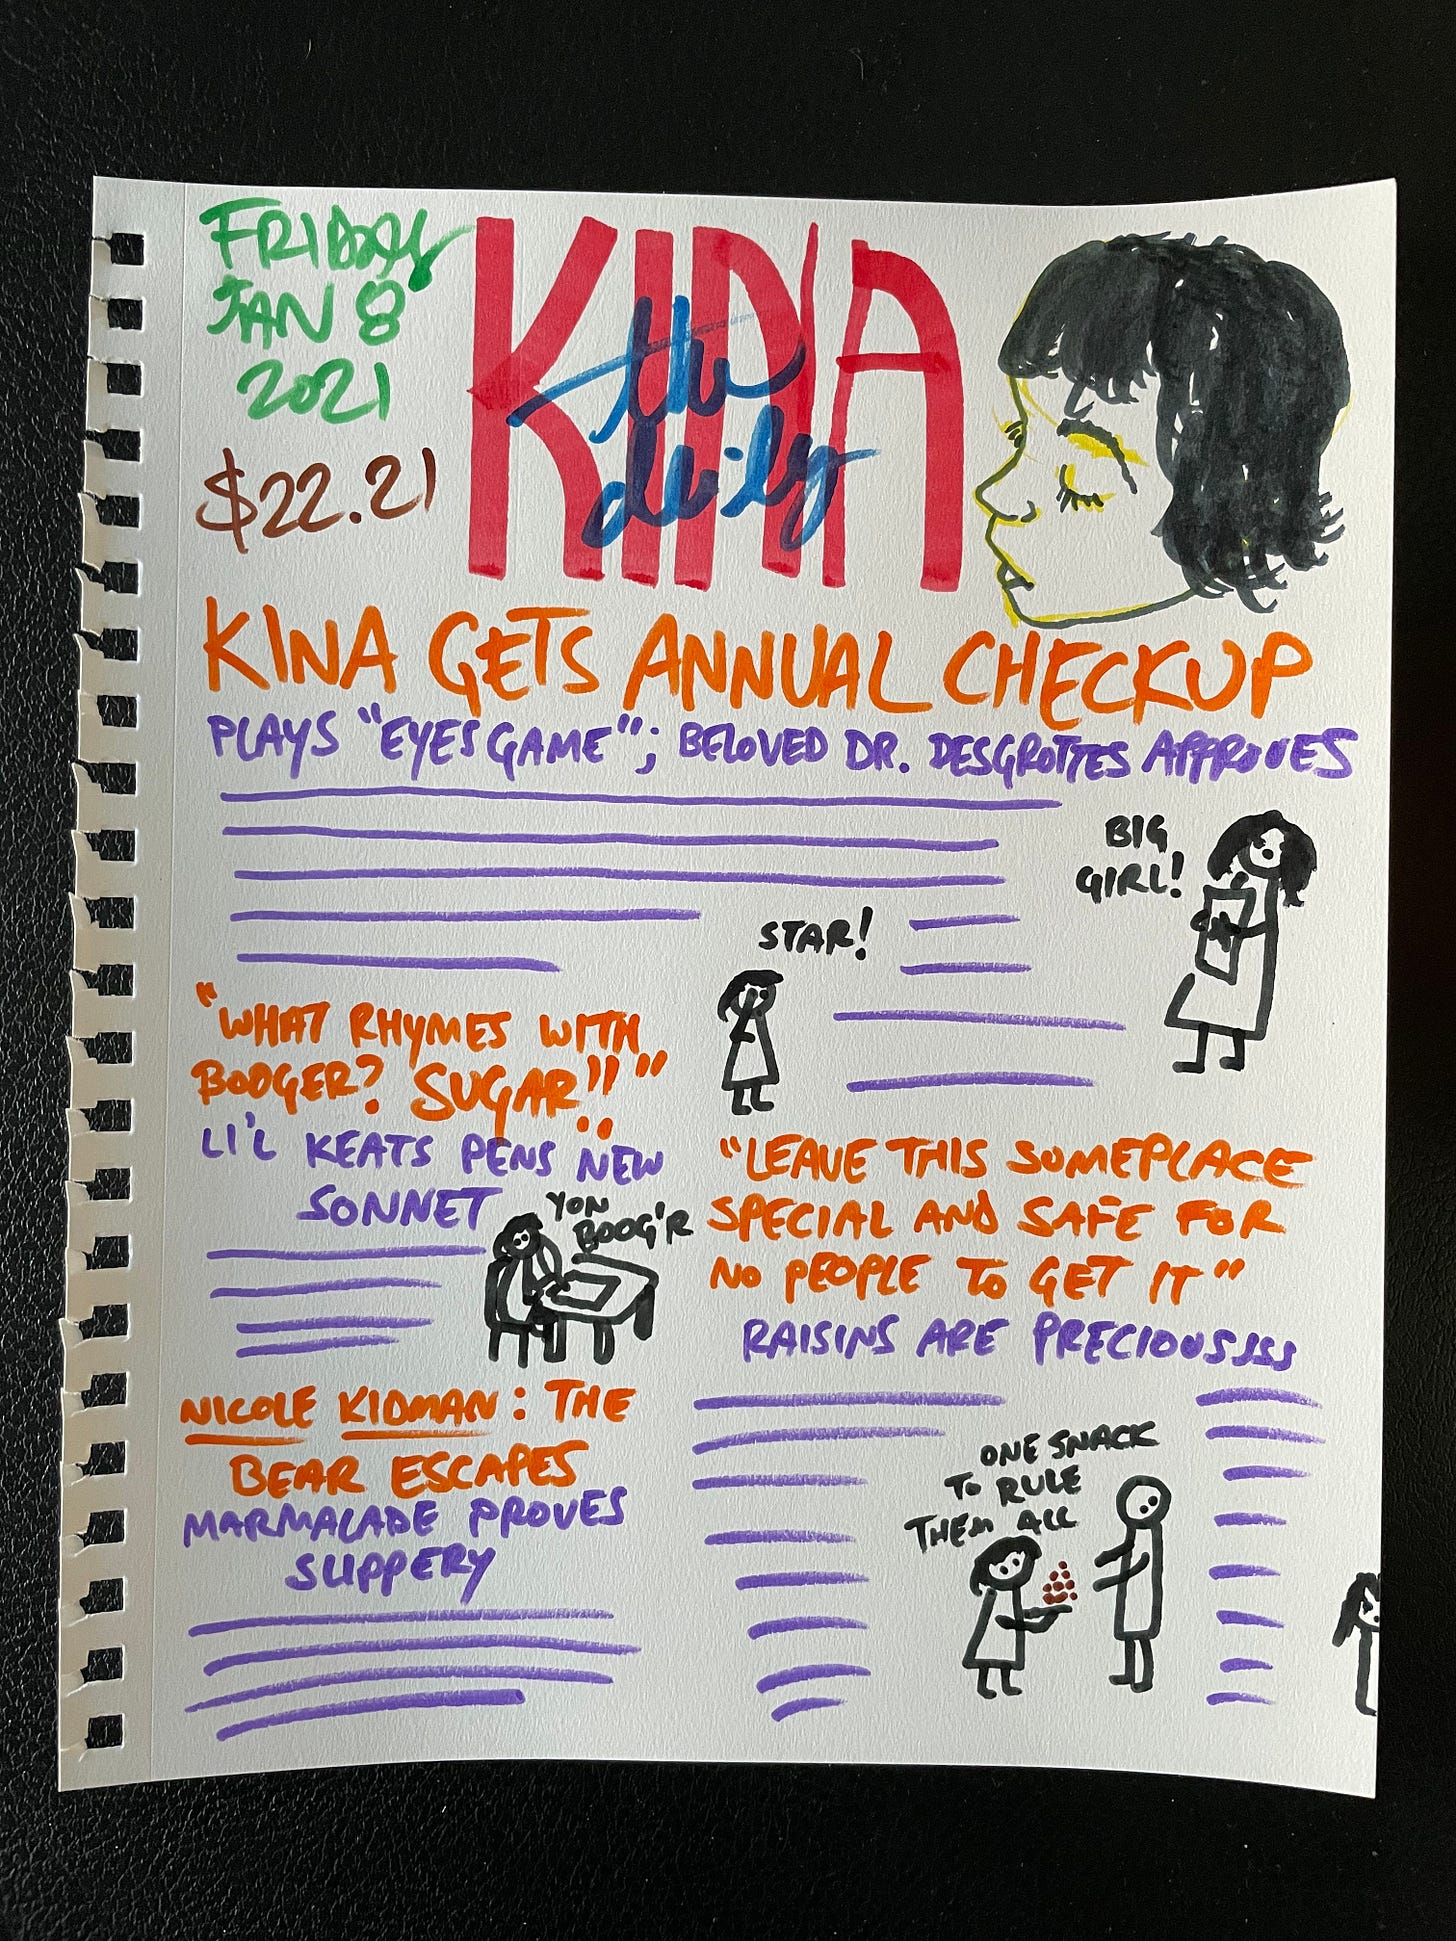 FRIDAY
JAN 8
2021
$22.21
KINA
the
daily
KINA GETS ANNUAL CHECKUP
PLAYS "EYES GAME"; BELOVED DR. DESGROTTES APPROVES
BIG
GIRL!
STAR!
"WHAT RHYMES WITH
BOOGER? SUGAR!!"
LI'L KEATS PENS NEW
SONNET
YON
BOOG'R
"LEAVE THIS SOMEPLACE
SPECIAL AND SAFE FOR
NO PEOPLE TO GET IT"
RAISINS ARE PRECIOUSSSS
ONE SNACK
TO RULE
THEM ALL
NICOLE KIDMAN: THE
BEAR ESCAPES
MARMALADE PROVES
SLIPPERY